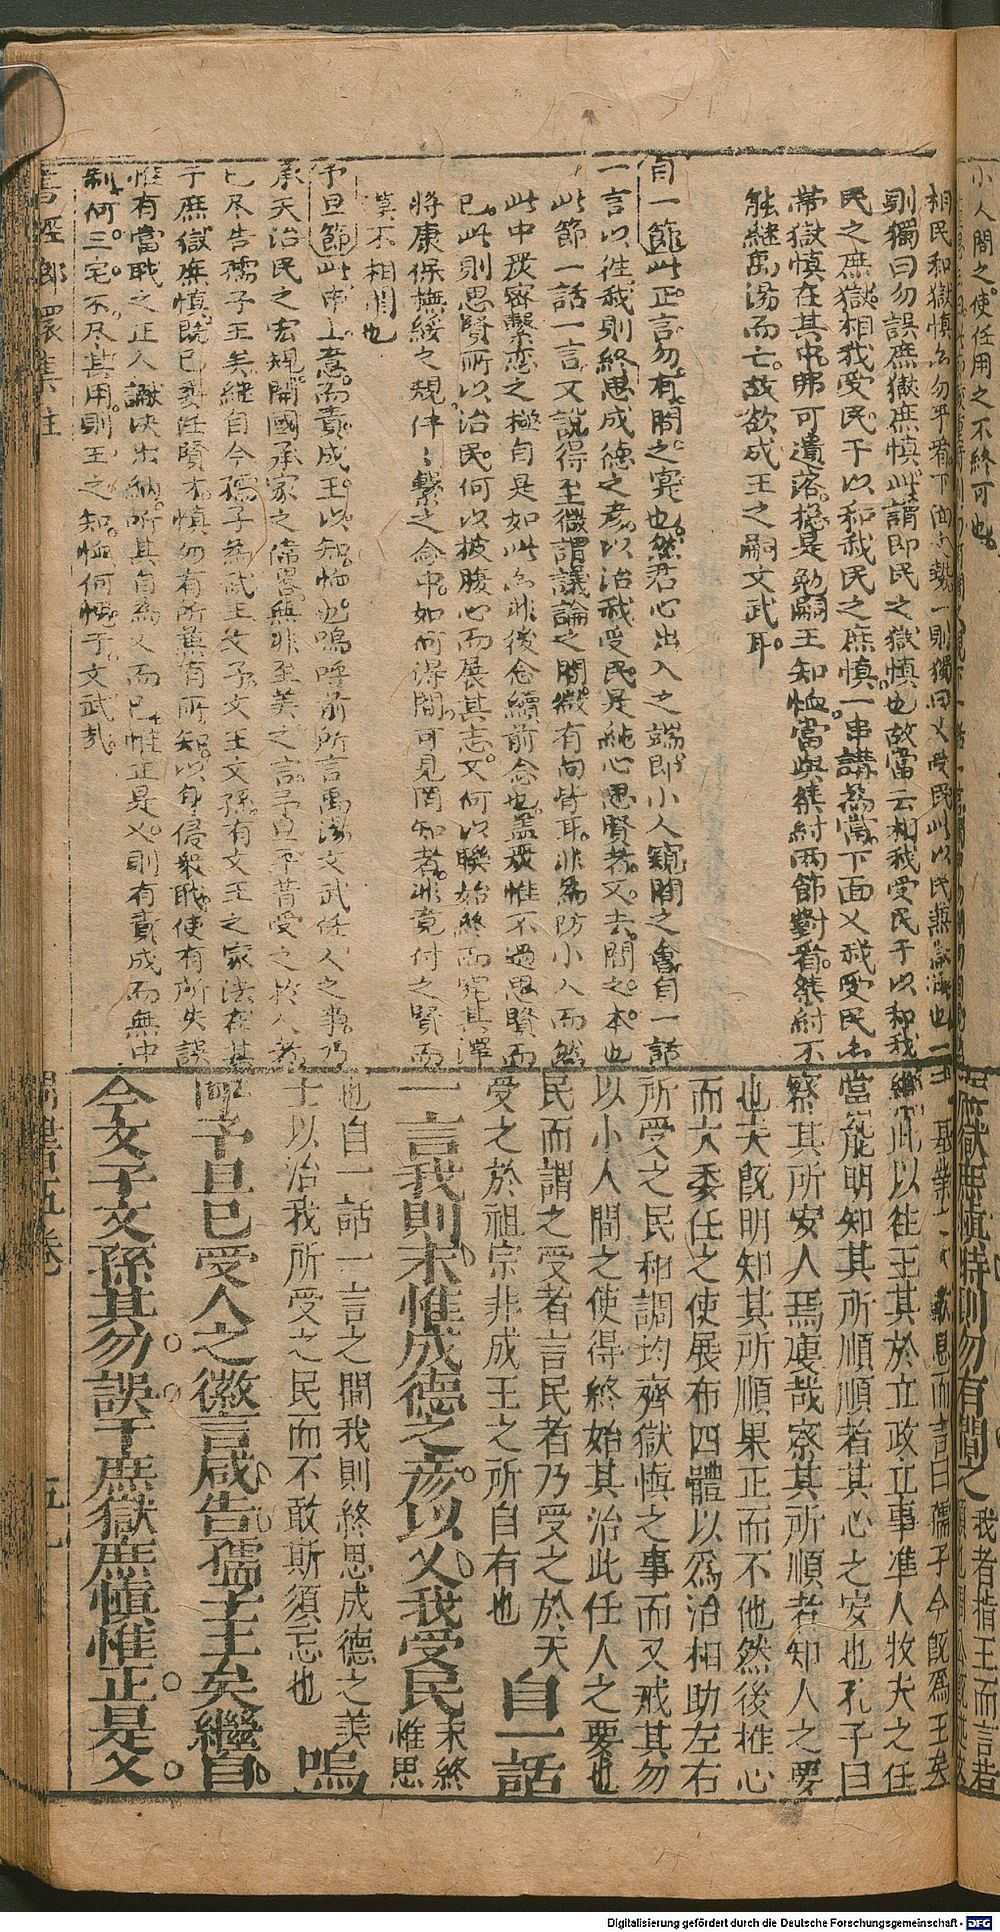 相民和獄慎
則獨曰勿誤庶獄庶慎此謂即民之獄慎也故當云相我受民于以和我
民之庶獄相我受民于以和我民之庶慎一串講為當下面乂我受民
帶獄慎在其中弗可遺落總是勉嗣王知恤當與桀紂兩節對看桀紂不
能繼禹湯而亡故欲成王之嗣文武耳
自一節此正言勿有間之實也然君心出入之端即小人窺間之會自一話
一言以往我則終思成德之彥以治我受民是純心思賢者又去間之本也
此節一話一言又說得至微謂議論之間微有向皆耳非為防小人而然
此中從容繫戀之極自是如此為非後念續前念也蓋我惟不過思賢而
已此則思賢所以治民何以披腹心而展其志又何以聯始終而究其澤
將康保撫綏之規件件繫之念中如何得間可見罔知者非竟付之賢而
莫不相關也
予旦節此申上意而責成王以知恤也嗚呼前所言禹湯文武任人之事乃
承天治民之宏規開國承家之偉畧無非至美之言予旦平昔受之於人者
已尽告孺子王矣繼自今孺子為武王文子文王文孫有文王之家法在其
于庶獄庶慎既已委任賢才慎勿有所兼有所知以身侵衆職使有所失誤
惟有當職之正人讞决出納听其自為乂而已惟正是乂則有責成而無中
制何三宅不尽其用則王之知恤何愧于文武哉
書經郎環集註
基業 歎息而言曰孺子今既爲王矣
繼此以往王其於立政立事准人牧夫之任
當能明知其所順順者其心之安也孔子曰
察其所安人焉廋哉察其所順者知人之要
也夫既明知其所順果正而不他然後推心
而大委任之使展布四體以爲治相助左右
所受之民和調均齊獄慎之事而又戒其勿
以小人間之使得終始其治此任人之要也
民而謂之受者言民者乃受之於天
受之於祖宗非成王之所自有也 自一話
一言我則末惟成德之彥以乂我受民 末終惟思
也自一話一言之間我則終思成德之美
士以治我所受之民而不敢斯須忘也 嗚
呼予旦已受人之徽言咸告孺子王矣繼自
今文子文孫其勿誤于庶獄庶慎惟正是乂
小人間之使任用之不終可也
時則勿有間之 我者指王而言若
Digitalisierung gefördert durch die Deutsche Forschungsgemeinschaft - DFG